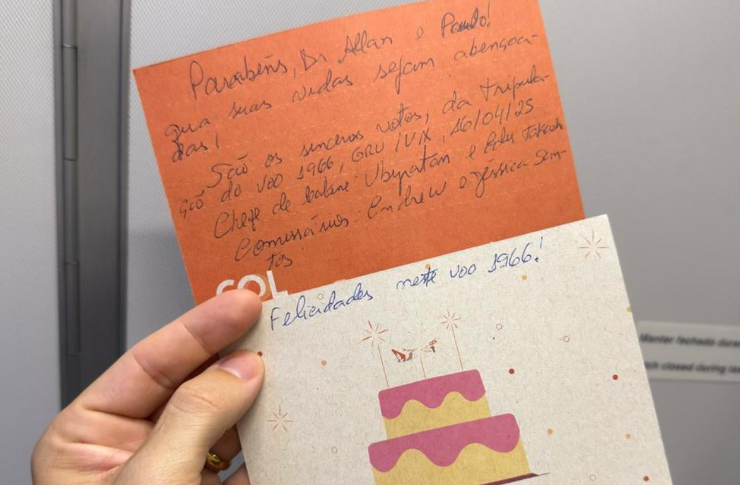 Parabéns, Dr Allan e Paulo!
que suas vidas sejam abençoa-
das!
São os sinceros votos, da tripula-
ção do voo 1966, GRU/VIX, 16/04/25
Chefe de cabine: Ubyratan e
Comissários: Endrew e Jéssica Sem-
tos
GOL
Felicidades neste voo 1966!
Manter fechado
closed during